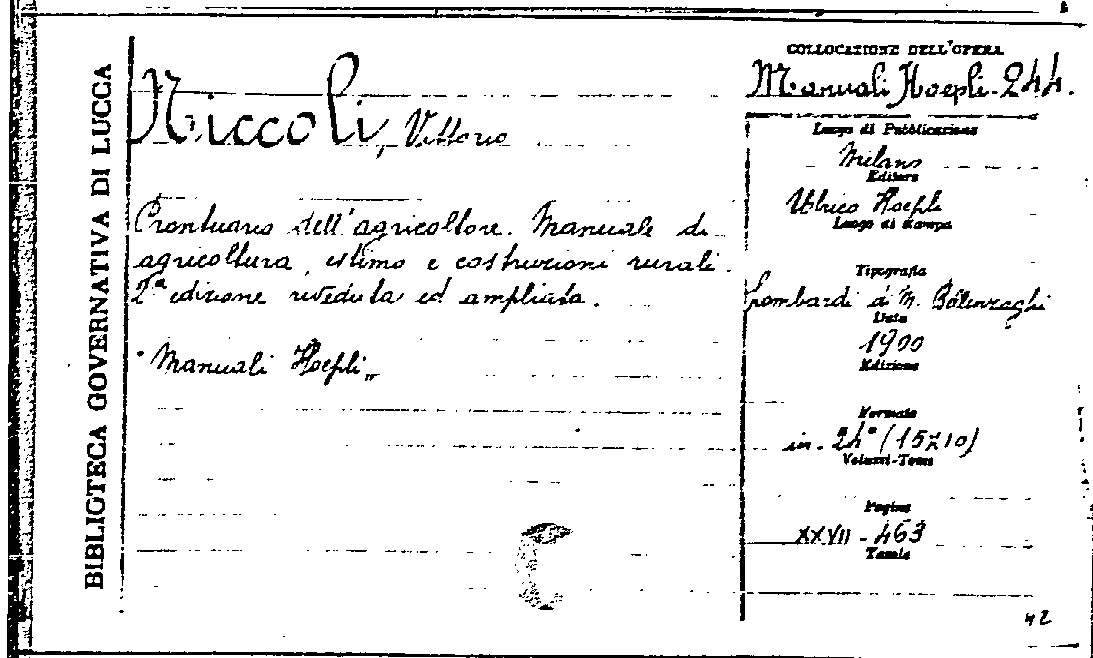 BIBLIOTECA GOVERNATIVA DI LUCCA
Niccoli, Vittorio
Prontuario dell'agricoltore. Manuale di
agricoltura, estimo e costruzioni rurali.
2ª edizione riveduta ed ampliata.
"Manuali Hoepli"
COLLOCAZIONE DELL'OPERA
Manuali Hoepli-244.
Luogo di Pubblicazione
Milano
Editore
Ulrico Hoepli
Luogo di Stampa
Tipografia
Lombardi di M. Bellinzaghi
Data
1900
Edizione
Formato
in-24° (15x10)
Volumi-Tomi
Pagine
XXVII-463
Tavole
42